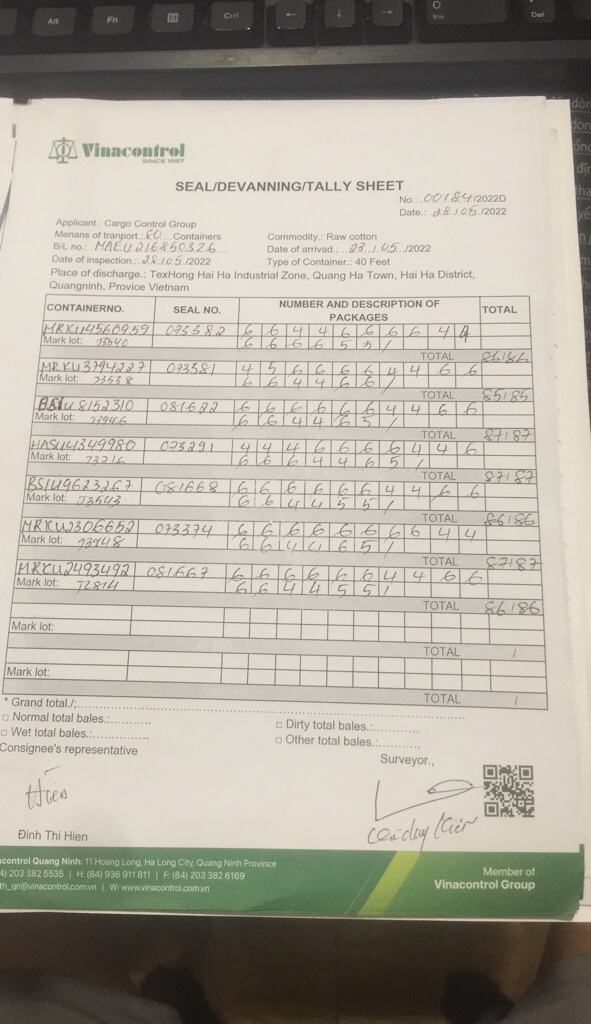 Vinacontrol
SINCE 1957
SEAL/DEVANNING/TALLY SHEET
No.: 00184/2022D
Date.: 28/05/2022
Applicant.: Cargo Control Group
Menans of tranport.: 80 Containers
Commodity.: Raw cotton
B/L no.: MAEU216850326
Date of arrivad.: 23/05/2022
Date of inspection.: 28/05/2022
Type of Container.: 40 Feet
Place of discharge.: TexHong Hai Ha Industrial Zone, Quang Ha Town, Hai Ha District,
Quangninh, Provice Vietnam
CONTAINERNO. SEAL NO. NUMBER AND DESCRIPTION OF PACKAGES TOTAL
MRKU4560959 073582 6 6 4 4 6 6 6 6 4
Mark lot: 73540 6 6 6 6 5
TOTAL 86/86
MRKU3794227 073581 4 5 6 6 6 6 4 4 6 6
Mark lot: 73538 6 6 4 4 6 6 /
TOTAL 85/85
8152310 081682 6 6 6 6 6 6 4 4 6 6
Mark lot: 73946 6 6 4 4 6 5 /
TOTAL 87/87
HASU4349980 073291 4 4 4 6 6 6 6 4 4 6
Mark lot: 73216 6 6 6 4 4 6 5 /
TOTAL 87/87
BSIU9623267 081668 6 6 6 6 6 6 4 4 6 6
Mark lot: 73543 6 6 4 4 5 5 /
TOTAL 86/86
MRKU2306652 073374 6 6 6 6 6 6 6 6 4 4
Mark lot: 73948 6 6 4 4 6 5 /
TOTAL 87/87
MRKU2493492 081667 6 6 6 6 6 6 4 4 6 6
Mark lot: 72814 6 6 4 4 5 5 /
TOTAL 86/86
Mark lot:
TOTAL /
Mark lot:
TOTAL /
* Grand total./;
□ Normal total bales.:
□ Dirty total bales.:
□ Wet total bales.:
□ Other total bales.:
Consignee's representative
Surveyor.,
Hiền
Đinh Thi Hien
control Quang Ninh: 11 Hoang Long, Ha Long City, Quang Ninh Province
4) 203 382 5535 | H: (84) 936 911 811 | F: (84) 203 382 6169
th_qn@vinacontrol.com.vn | W: www.vinacontrol.com.vn
Member of
Vinacontrol Group
Alt
Fn
Ctrl
←
↓
→
O
Ins
Del